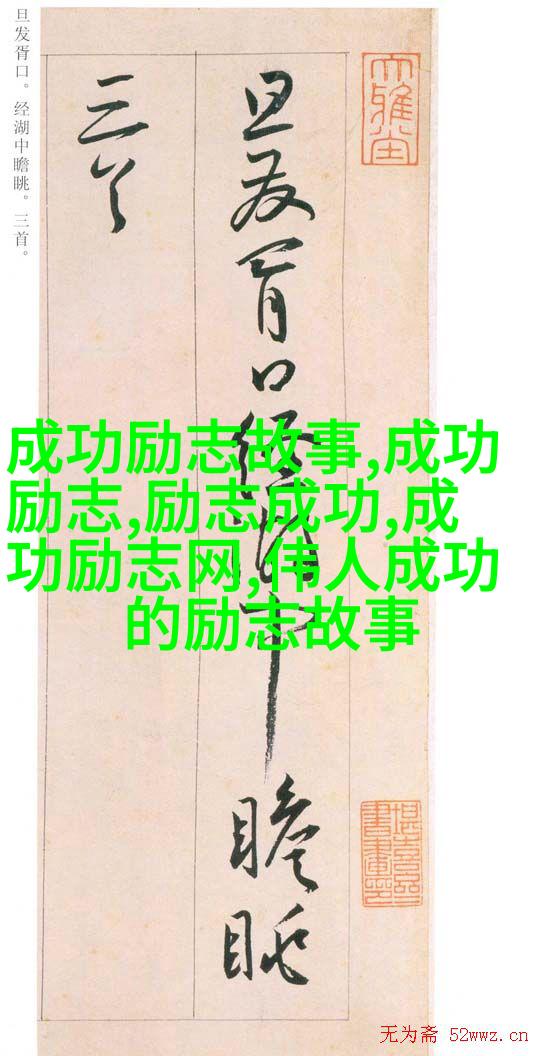 旦发胥口。经湖中瞻眺。三首。
旦发胥口经湖中瞻眺
三首
大雅堂
成功励志故事,成功
励志,励志成功,成
功励志网,伟人成功
的励志故事
无为斋 52wwz.cn